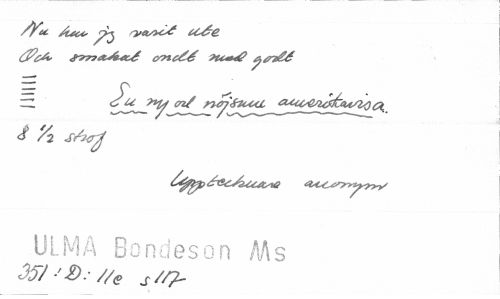 Nu har jg varit ute
Och smakat ondt med godt
En ny och nöjsam amerikavisa.
8 1/2 strof
Upptecknare anonym
ULMA Bondeson Ms
351:D:11c s117